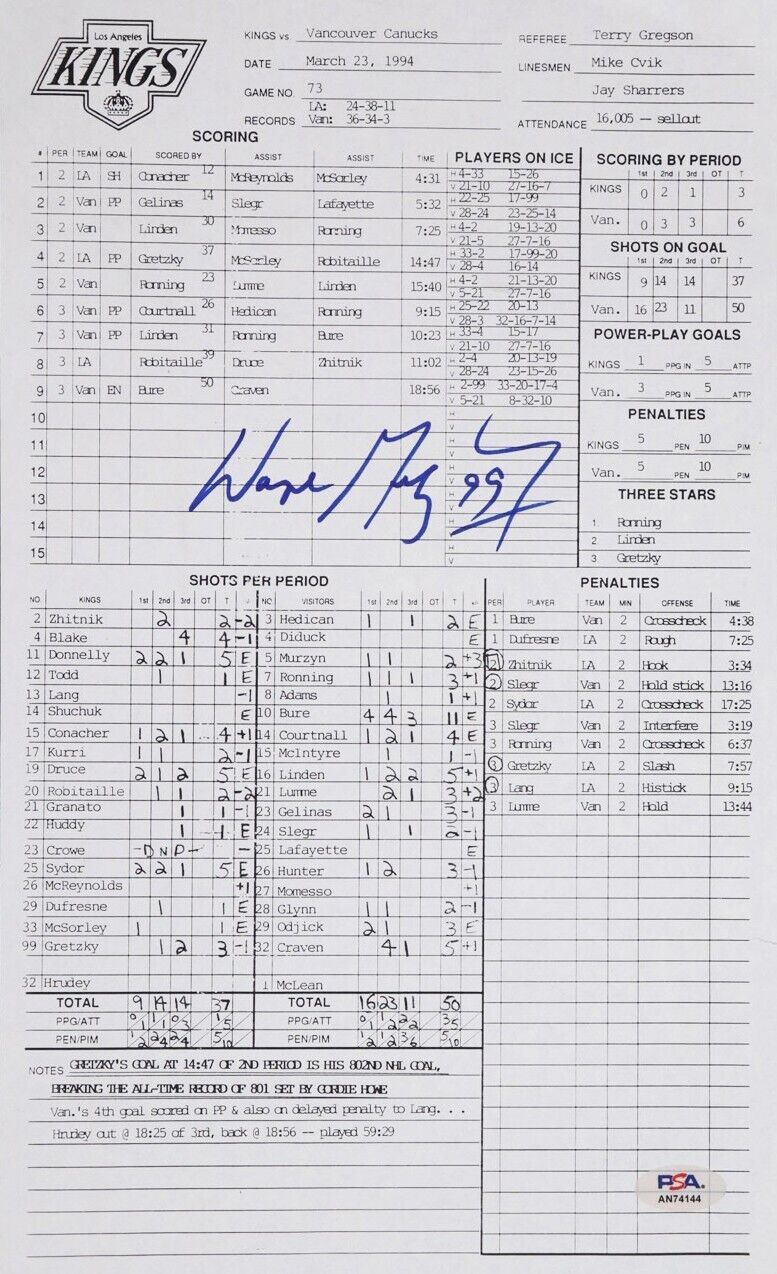 Los Angeles
KINGS
KINGS vs Vancouver Canucks
DATE March 23, 1994
GAME NO. 73
LA: 24-38-11
RECORDS Van: 36-34-3
REFEREE Terry Gregson
LINESMEN Mike Cvik
Jay Sharrers
ATTENDANCE 16,005 -- sellout
SCORING
# PER TEAM GOAL SCORED BY ASSIST ASSIST TIME PLAYERS ON ICE
1 2 LA SH Conacher 12 McReynolds McSorley 4:31 H 4-33 15-26
V 21-10 27-16-7
2 2 Van PP Gelinas 14 Slegr Lafayette 5:32 H 22-25 17-99
V 28-24 23-25-14
3 2 Van Linden 30 Momesso Ronning 7:25 H 4-2 19-13-20
V 21-5 27-7-16
4 2 LA PP Gretzky 37 McSorley Robitaille 14:47 H 33-2 17-99-20
V 28-4 16-14
5 2 Van Ronning 23 Lumme Linden 15:40 H 4-2 21-13-20
V 5-21 27-7-16
6 3 Van PP Courtnall 26 Hedican Ronning 9:15 H 25-22 20-13
V 28-3 32-16-7-14
7 3 Van PP Linden 31 Ronning Bure 10:23 H 33-4 15-17
V 21-10 27-7-16
8 3 LA Robitaille 39 Druce Zhitnik 11:02 H 2-4 20-13-19
V 28-24 23-15-26
9 3 Van EN Bure 50 Craven 18:56 H 2-99 33-20-17-4
V 5-21 8-32-10
10 H
V
11 H
V
12 H
V
13 H
V
14 H
V
15 H
V
Wayne Gretzky 99
SCORING BY PERIOD
1st 2nd 3rd OT T
KINGS 0 2 1 3
Van. 0 3 3 6
SHOTS ON GOAL
1st 2nd 3rd OT T
KINGS 9 14 14 37
Van. 16 23 11 50
POWER-PLAY GOALS
KINGS 1 PPG IN 5 ATTP
Van. 3 PPG IN 5 ATTP
PENALTIES
KINGS 5 PEN 10 PIM
Van. 5 PEN 10 PIM
THREE STARS
1. Ronning
2 Linden
3 Gretzky
SHOTS PER PERIOD
NO. KINGS 1st 2nd 3rd OT T +/- NO. VISITORS 1st 2nd 3rd OT T +/-
2 Zhitnik 2 2 -2 3 Hedican 1 1 2 E
4 Blake 4 4 -1 4 Diduck E
11 Donnelly 2 2 1 5 E 5 Murzyn 1 1 2 +3
12 Todd 1 1 E 7 Ronning 1 1 1 3 +1
13 Lang -1 8 Adams 1 1 +1
14 Shuchuk E 10 Bure 4 4 3 11 E
15 Conacher 1 2 1 4 +1 14 Courtnall 1 2 1 4 E
17 Kurri 1 1 2 -1 15 McIntyre 1 1 -1
19 Druce 2 1 2 5 E 16 Linden 1 2 2 5 +1
20 Robitaille 1 1 2 -2 21 Lumme 2 1 3 +2
21 Granato 1 1 -1 23 Gelinas 2 1 3 -1
22 Huddy 1 1 E 24 Slegr 1 1 2 -1
23 Crowe -DNP- - 25 Lafayette E
25 Sydor 2 2 1 5 E 26 Hunter 1 2 3 -1
26 McReynolds +1 27 Momesso +1
29 Dufresne 1 1 E 28 Glynn 1 1 2 -1
33 McSorley 1 1 E 29 Odjick 2 1 3 E
99 Gretzky 1 2 3 -1 32 Craven 4 1 5 +1
32 Hrudey 1 McLean
TOTAL 9 14 14 37 TOTAL 16 23 11 50
PPG/ATT 0/1 1/1 0/3 1/5 PPG/ATT 0/1 1/2 2/2 3/5
PEN/PIM 1/2 2/4 2/4 5/10 PEN/PIM 1/2 1/2 3/6 5/10
PENALTIES
PER PLAYER TEAM MIN OFFENSE TIME
1 Bure Van 2 Crosscheck 4:38
1 Dufresne LA 2 Rough 7:25
2 Zhitnik LA 2 Hook 3:34
2 Slegr Van 2 Hold stick 13:16
2 Sydor LA 2 Crosscheck 17:25
3 Slegr Van 2 Interfere 3:19
3 Ronning Van 2 Crosscheck 6:37
Gretzky LA 2 Slash 7:57
3 Lang LA 2 Histick 9:15
3 Lumme Van 2 Hold 13:44
NOTES GRETZKY'S GOAL AT 14:47 OF 2ND PERIOD IS HIS 802ND NHL GOAL,
BREAKING THE ALL-TIME RECORD OF 801 SET BY GORDIE HOWE
Van.'s 4th goal scored on PP & also on delayed penalty to Lang. . .
Hrudey out @ 18:25 of 3rd, back @ 18:56 -- played 59:29
PSA.
AN74144